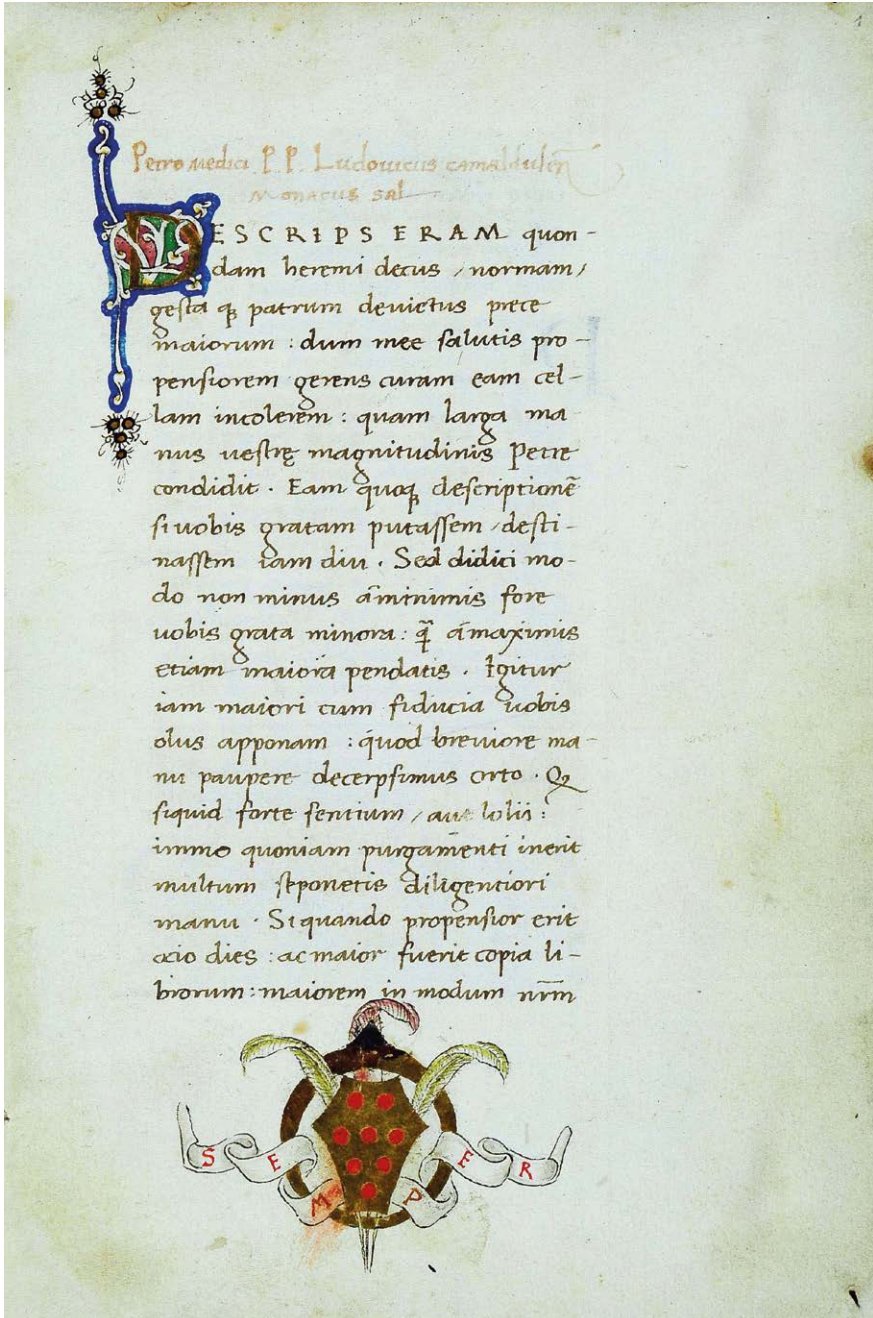 Petro Medici P. P. Ludovicus camaldulen̄
Monacus sal
DESCRIPSERAM quon-
dam heremi decus / normam /
gesta q̢ patrum devictus prece
maiorum : dum mee salutis pro-
pensiorem gerens curam eam cel-
lam incolerem : quam larga ma
nus uestrę magnitudinis Petre
condidit . Eam quoq̢ descriptionē
si uobis gratam putassem / desti-
nassem iam diu . Sed didici mo-
do non minus a minimis fore
uobis grata minora : q̄ a maximis
etiam maiora pendatis . Igitur
iam maiori cum fiducia uobis
olus apponam : quod breviore ma-
nu paupere decerpsimus orto . Q̢
siquid forte sentium / aut lolii :
immo quoniam purgamenti inerit
multum seponetis diligentiori
manu . Si quando propensior erit
ocio dies : ac maior fuerit copia li-
brorum : maiorem in modum nr̄m
SEMPER